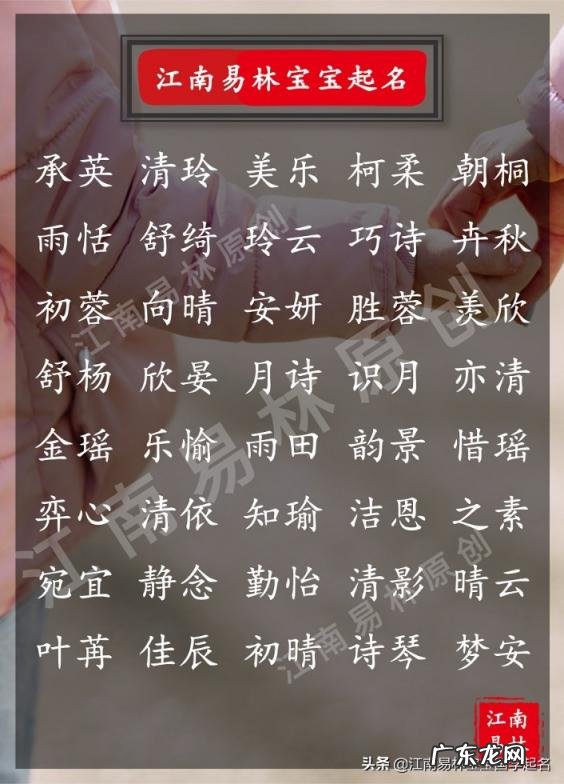 江南易林宝宝起名
承英 清玲 美乐 柯柔 朝桐
雨恬 舒绮 玲云 巧诗 卉秋
初蓉 向晴 安妍 胜蓉 羡欣
舒杨 欣晏 月诗 识月 亦清
金瑶 乐愉 雨田 韵景 惜瑶
弈心 清依 知瑜 洁恩 之素
宛宜 静念 勤怡 清影 晴云
叶苒 佳辰 初晴 诗琴 梦安
江南易林原创
江南易林原创
江南易林原创
江南
易林
头条 @江南易林宝宝国学起名
广东龙网